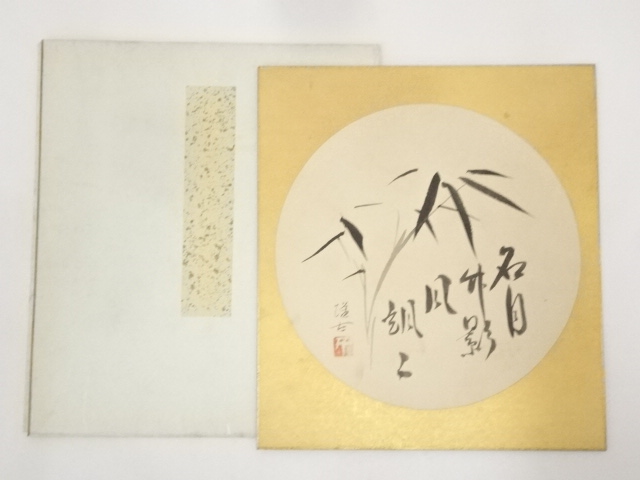 名月
竹影
風
颯々